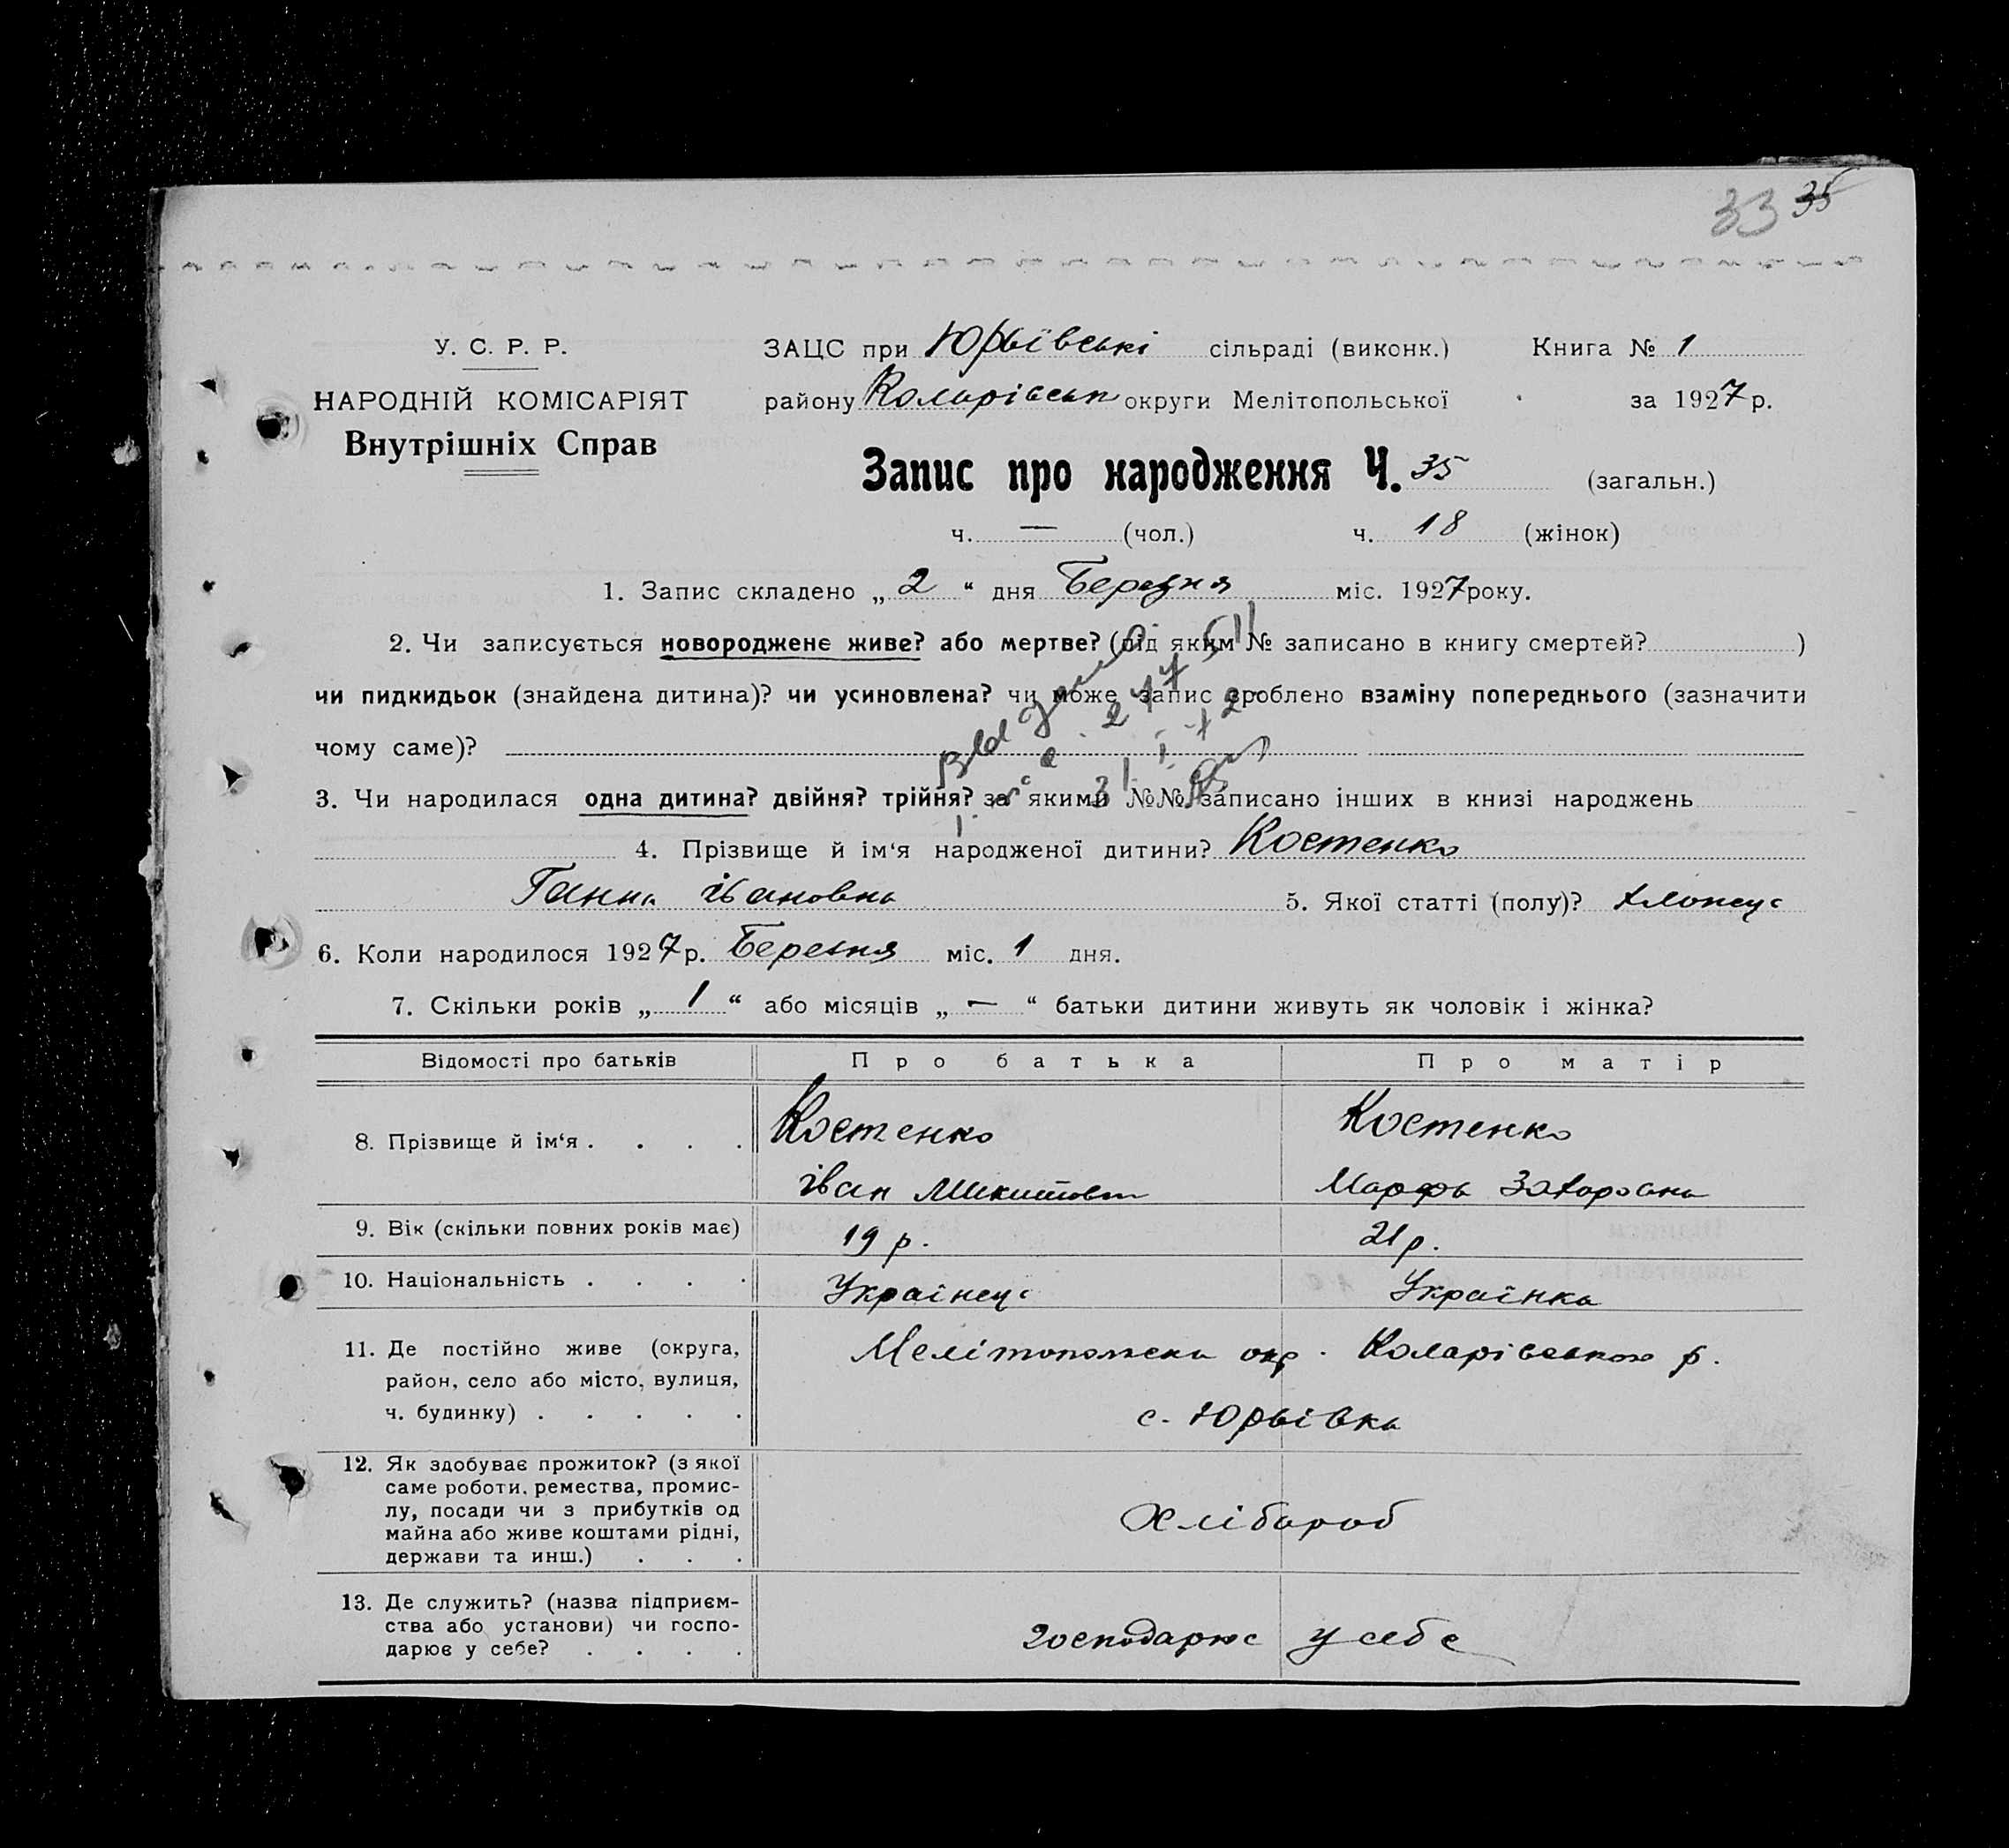 33 35
У. С. Р. Р.
НАРОДНІЙ КОМІСАРІЯТ
Внутрішніх Справ
ЗАЦС при Юрьївські сільраді (виконк.) Книга № 1
району Коларівськ округи Мелітопольської за 1927 р.
Запис про народження Ч. 35 (загальн.)
ч. — (чол.) ч. 18 (жінок)
1. Запис складено „ 2 “ дня Березня міс. 1927 року.
2. Чи записується новороджене живе? або мертве? (під яким № записано в книгу смертей? )
чи пидкидьок (знайдена дитина)? чи усиновлена? чи може запис зроблено взаміну попереднього (зазначити
чому саме)?
3. Чи народилася одна дитина? двійня? трійня? за якими №№ записано інших в книзі народжень
4. Прізвище й ім‘я народженої дитини? Костенко
Ганна Івановна 5. Якої статті (полу)? хлопець
6. Коли народилося 1927 р. Березня міс. 1 дня.
7. Скільки років „ 1 “ або місяців „ — “ батьки дитини живуть як чоловік і жінка?
Відомості про батьків Про батька Про матір
8. Прізвище й ім‘я . . . . Костенко Іван Микитович Костенко Марфа Захаровна
9. Вік (скільки повних років має) 19 р. 21 р.
10. Національність . . . . Украінець Украінка
11. Де постійно живе (округа,
район, село або місто, вулиця,
ч. будинку) . . . . .
Мелітопольска окр. Коларівського р.
с. Юрьівка
12. Як здобуває прожиток? (з якої
саме роботи, ремества, промис-
лу, посади чи з прибутків од
майна або живе коштами рідні,
держави та инш.) . . .
Хлібороб
13. Де служить? (назва підприєм-
ства або установи) чи госпо-
дарює у себе? . . . .
господарює у себе